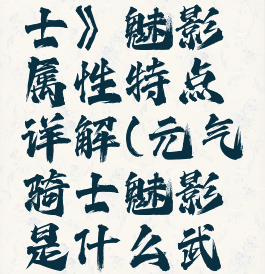 士》魅影
属性特点
详解(元气
骑士魅影
是什么武